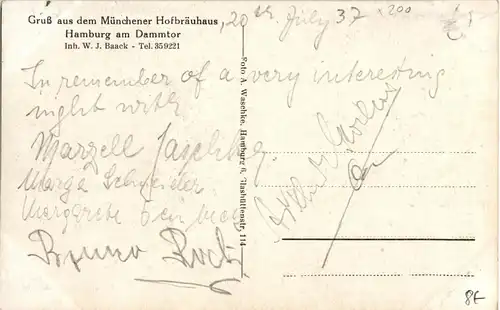 Gruß aus dem Münchener Hofbräuhaus
Hamburg am Dammtor
Inh. W. J. Baack - Tel. 359221
20th July 37
x200
In remember of a very interesting
night with
Marzell
Marga Schneider
Margarete
Bruno Koch
Foto A. Waschke, Hamburg 6, Glashüttenstr. 114
8F